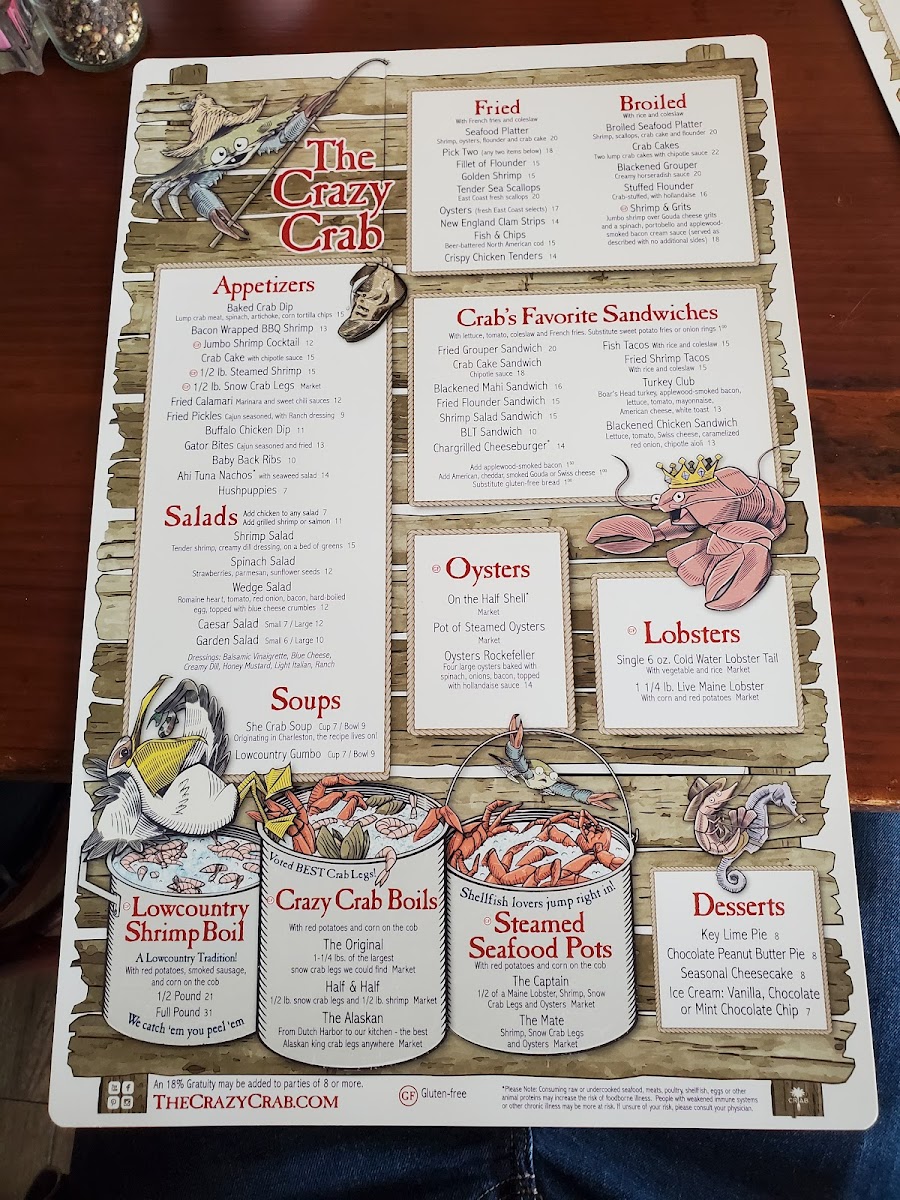 The
Crazy
Crab
Fried
With French fries and coleslaw
Seafood Platter
Shrimp, oysters, flounder and crab cake 20
Pick Two (any two items below) 18
Fillet of Flounder 15
Golden Shrimp 15
Tender Sea Scallops
East Coast fresh scallops 20
Oysters (fresh East Coast selects) 17
New England Clam Strips 14
Fish & Chips
Beer-battered North American cod 15
Crispy Chicken Tenders 14
Broiled
With rice and coleslaw
Broiled Seafood Platter
Shrimp, scallops, crab cake and flounder 20
Crab Cakes
Two lump crab cakes with chipotle sauce 22
Blackened Grouper
Creamy horseradish sauce 20
Stuffed Flounder
Crab-stuffed, with hollandaise 16
GF Shrimp & Grits
Jumbo shrimp over Gouda cheese grits
and a spinach, portobello and applewood-
smoked bacon cream sauce (served as
described with no additional sides) 18
Appetizers
Baked Crab Dip
Lump crab meat, spinach, artichoke, corn tortilla chips 15
Bacon Wrapped BBQ Shrimp 13
GF Jumbo Shrimp Cocktail 12
Crab Cake with chipotle sauce 15
GF 1/2 lb. Steamed Shrimp 15
GF 1/2 lb. Snow Crab Legs Market
Fried Calamari Marinara and sweet chili sauces 12
Fried Pickles Cajun seasoned, with Ranch dressing 9
Buffalo Chicken Dip 11
Gator Bites Cajun seasoned and fried 13
Baby Back Ribs 10
Ahi Tuna Nachos* with seaweed salad 14
Hushpuppies 7
Salads
Add chicken to any salad 7
Add grilled shrimp or salmon 11
Shrimp Salad
Tender shrimp, creamy dill dressing, on a bed of greens 15
Spinach Salad
Strawberries, parmesan, sunflower seeds 12
Wedge Salad
Romaine heart, tomato, red onion, bacon, hard-boiled
egg, topped with blue cheese crumbles 12
Caesar Salad Small 7 / Large 12
Garden Salad Small 6 / Large 10
Dressings: Balsamic Vinaigrette, Blue Cheese,
Creamy Dill, Honey Mustard, Light Italian, Ranch
Soups
She Crab Soup Cup 7 / Bowl 9
Originating in Charleston, the recipe lives on!
Lowcountry Gumbo Cup 7 / Bowl 9
Crab's Favorite Sandwiches
With lettuce, tomato, coleslaw and French fries. Substitute sweet potato fries or onion rings 1.00
Fried Grouper Sandwich 20
Crab Cake Sandwich
Chipotle sauce 18
Blackened Mahi Sandwich 16
Fried Flounder Sandwich 15
Shrimp Salad Sandwich 15
BLT Sandwich 10
Chargrilled Cheeseburger* 14
Fish Tacos With rice and coleslaw 15
Fried Shrimp Tacos
With rice and coleslaw 15
Turkey Club
Boar's Head turkey, applewood-smoked bacon,
lettuce, tomato, mayonnaise,
American cheese, white toast 13
Blackened Chicken Sandwich
Lettuce, tomato, Swiss cheese, caramelized
red onion, chipotle aioli 13
Add applewood-smoked bacon
Add American, cheddar, smoked Gouda or Swiss cheese
Substitute gluten-free bread
GF Oysters
On the Half Shell*
Market
Pot of Steamed Oysters
Market
Oysters Rockefeller
Four large oysters baked with
spinach, onions, bacon, topped
with hollandaise sauce 14
GF Lobsters
Single 6 oz. Cold Water Lobster Tail
With vegetable and rice Market
1 1/4 lb. Live Maine Lobster
With corn and red potatoes Market
GF Lowcountry
Shrimp Boil
A Lowcountry Tradition!
With red potatoes, smoked sausage,
and corn on the cob
1/2 Pound 21
Full Pound 31
We catch 'em you peel 'em
Voted BEST Crab Legs!
GF Crazy Crab Boils
With red potatoes and corn on the cob
The Original
1-1/4 lbs. of the largest
snow crab legs we could find Market
Half & Half
1/2 lb. snow crab legs and 1/2 lb. shrimp Market
The Alaskan
From Dutch Harbor to our kitchen - the best
Alaskan king crab legs anywhere Market
Shellfish lovers jump right in!
GF Steamed
Seafood Pots
With red potatoes and corn on the cob
The Captain
1/2 of a Maine Lobster, Shrimp, Snow
Crab Legs and Oysters Market
The Mate
Shrimp, Snow Crab Legs
and Oysters Market
Desserts
Key Lime Pie 8
Chocolate Peanut Butter Pie 8
Seasonal Cheesecake 8
Ice Cream: Vanilla, Chocolate
or Mint Chocolate Chip 7
An 18% Gratuity may be added to parties of 8 or more.
TheCrazyCrab.com
GF Gluten-free
*Please Note: Consuming raw or undercooked seafood, meats, poultry, shellfish, eggs or other
animal proteins may increase the risk of foodborne illness. People with weakened immune systems
or other chronic illness may be more at risk. If unsure of your risk, please consult your physician.